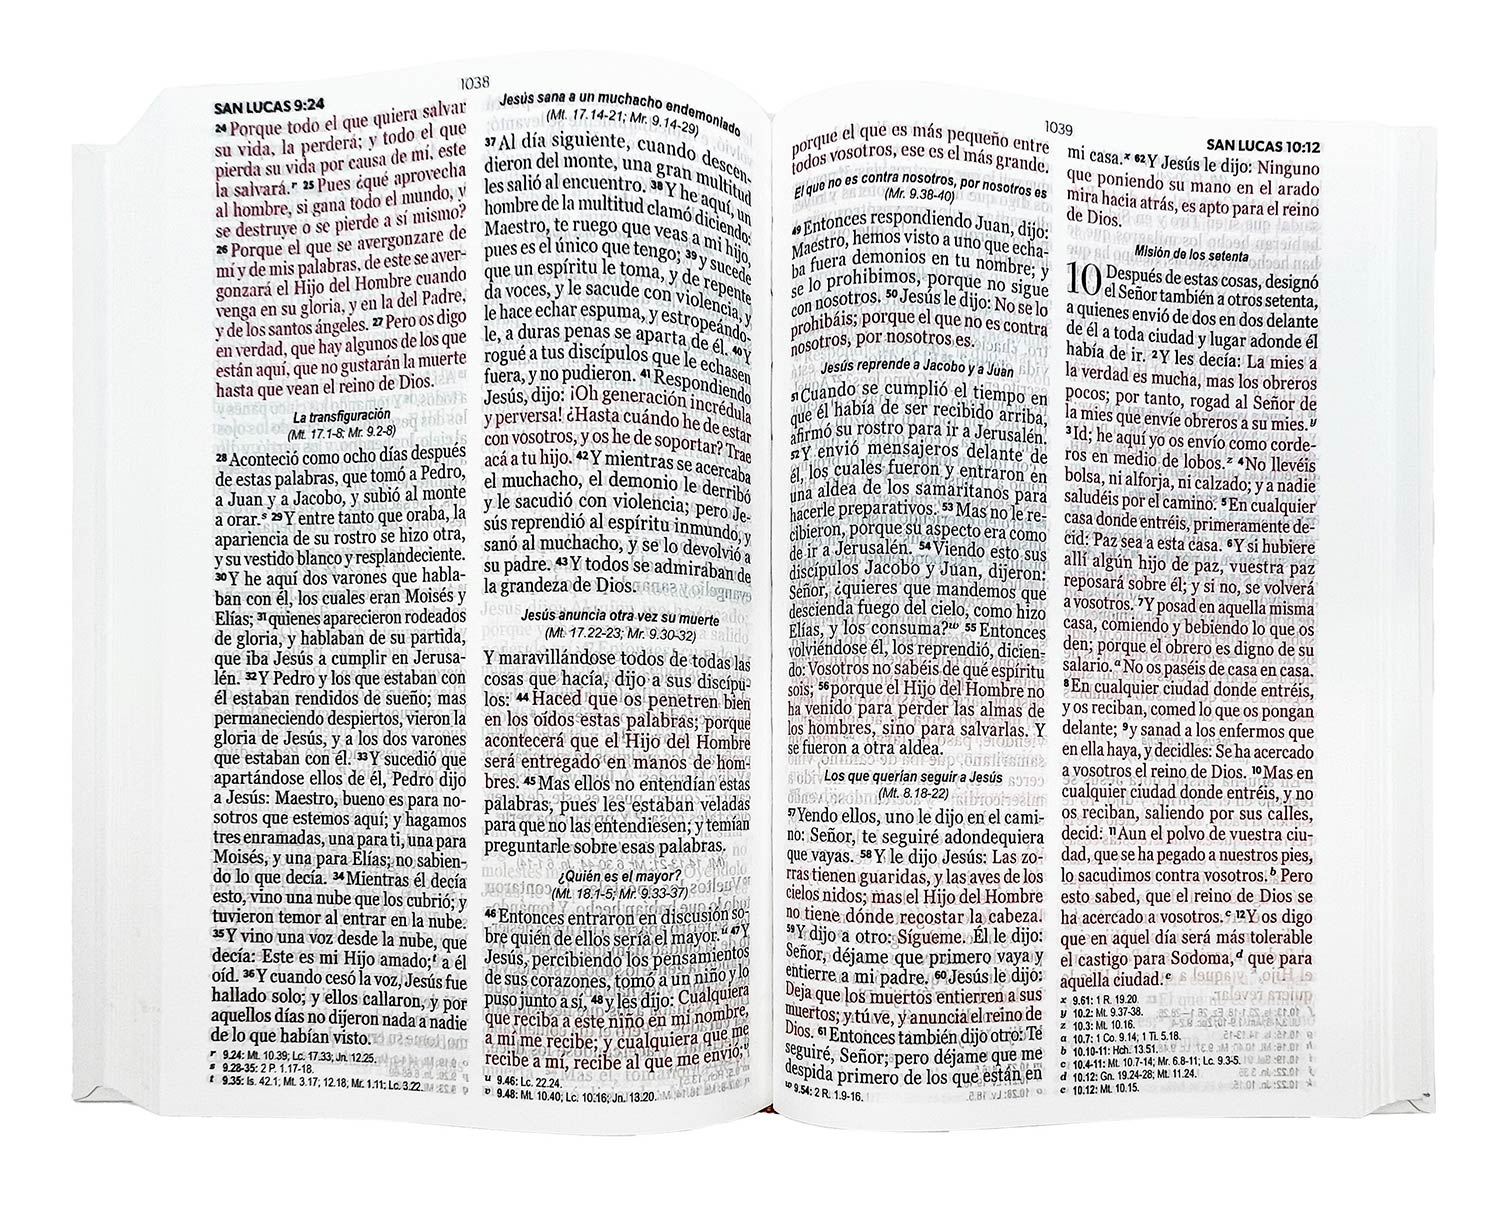 1038
SAN LUCAS 9:24
24 Porque todo el que quiera salvar
su vida, la perderá; y todo el que
pierda su vida por causa de mí, este
la salvará.r 25 Pues ¿qué aprovecha
al hombre, si gana todo el mundo, y
se destruye o se pierde a sí mismo?
26 Porque el que se avergonzare de
mí y de mis palabras, de este se aver-
gonzará el Hijo del Hombre cuando
venga en su gloria, y en la del Padre,
y de los santos ángeles. 27 Pero os digo
en verdad, que hay algunos de los que
están aquí, que no gustarán la muerte
hasta que vean el reino de Dios.
La transfiguración
(Mt. 17.1-8; Mr. 9.2-8)
28 Aconteció como ocho días después
de estas palabras, que tomó a Pedro,
a Juan y a Jacobo, y subió al monte
a orar.s 29 Y entre tanto que oraba, la
apariencia de su rostro se hizo otra,
y su vestido blanco y resplandeciente.
30 Y he aquí dos varones que habla-
ban con él, los cuales eran Moisés y
Elías; 31 quienes aparecieron rodeados
de gloria, y hablaban de su partida,
que iba Jesús a cumplir en Jerusa-
lén. 32 Y Pedro y los que estaban con
él estaban rendidos de sueño; mas
permaneciendo despiertos, vieron la
gloria de Jesús, y a los dos varones
que estaban con él. 33 Y sucedió que
apartándose ellos de él, Pedro dijo
a Jesús: Maestro, bueno es para no-
sotros que estemos aquí; y hagamos
tres enramadas, una para ti, una para
Moisés, y una para Elías; no sabien-
do lo que decía. 34 Mientras él decía
esto, vino una nube que los cubrió; y
tuvieron temor al entrar en la nube.
35 Y vino una voz desde la nube, que
decía: Este es mi Hijo amado;t a él
oíd. 36 Y cuando cesó la voz, Jesús fue
hallado solo; y ellos callaron, y por
aquellos días no dijeron nada a nadie
de lo que habían visto.
r 9.24: Mt. 10.39; Lc. 17.33; Jn. 12.25.
s 9.28-35: 2 P. 1.17-18.
t 9.35: Is. 42.1; Mt. 3.17; 12.18; Mr. 1.11; Lc. 3.22.
Jesús sana a un muchacho endemoniado
(Mt. 17.14-21; Mr. 9.14-29)
37 Al día siguiente, cuando descen-
dieron del monte, una gran multitud
les salió al encuentro. 38 Y he aquí, un
hombre de la multitud clamó diciendo:
Maestro, te ruego que veas a mi hijo,
pues es el único que tengo; 39 y sucede
que un espíritu le toma, y de repente
da voces, y le sacude con violencia, y
le hace echar espuma, y estropeándo-
le, a duras penas se aparta de él. 40 Y
rogué a tus discípulos que le echasen
fuera, y no pudieron. 41 Respondiendo
Jesús, dijo: ¡Oh generación incrédula
y perversa! ¿Hasta cuándo he de estar
con vosotros, y os he de soportar? Trae
acá a tu hijo. 42 Y mientras se acercaba
el muchacho, el demonio le derribó
y le sacudió con violencia; pero Je-
sús reprendió al espíritu inmundo, y
sanó al muchacho, y se lo devolvió a
su padre. 43 Y todos se admiraban de
la grandeza de Dios.
Jesús anuncia otra vez su muerte
(Mt. 17.22-23; Mr. 9.30-32)
Y maravillándose todos de todas las
cosas que hacía, dijo a sus discípu-
los: 44 Haced que os penetren bien
en los oídos estas palabras; porque
acontecerá que el Hijo del Hombre
será entregado en manos de hom-
bres. 45 Mas ellos no entendían estas
palabras, pues les estaban veladas
para que no las entendiesen; y temían
preguntarle sobre esas palabras.
¿Quién es el mayor?
(Mt. 18.1-5; Mr. 9.33-37)
46 Entonces entraron en discusión so-
bre quién de ellos sería el mayor.u 47 Y
Jesús, percibiendo los pensamientos
de sus corazones, tomó a un niño y lo
puso junto a sí, 48 y les dijo: Cualquiera
que reciba a este niño en mi nombre,
a mí me recibe; y cualquiera que me
recibe a mí, recibe al que me envió;v
u 9.46: Lc. 22.24.
v 9.48: Mt. 10.40; Lc. 10.16; Jn. 13.20.
1039
SAN LUCAS 10:12
porque el que es más pequeño entre
todos vosotros, ese es el más grande.
El que no es contra nosotros, por nosotros es
(Mr. 9.38-40)
49 Entonces respondiendo Juan, dijo:
Maestro, hemos visto a uno que echa-
ba fuera demonios en tu nombre; y
se lo prohibimos, porque no sigue
con nosotros. 50 Jesús le dijo: No se lo
prohibáis; porque el que no es contra
nosotros, por nosotros es.
Jesús reprende a Jacobo y a Juan
51 Cuando se cumplió el tiempo en
que él había de ser recibido arriba,
afirmó su rostro para ir a Jerusalén.
52 Y envió mensajeros delante de
él, los cuales fueron y entraron en
una aldea de los samaritanos para
hacerle preparativos. 53 Mas no le re-
cibieron, porque su aspecto era como
de ir a Jerusalén. 54 Viendo esto sus
discípulos Jacobo y Juan, dijeron:
Señor, ¿quieres que mandemos que
descienda fuego del cielo, como hizo
Elías, y los consuma?w 55 Entonces
volviéndose él, los reprendió, dicien-
do: Vosotros no sabéis de qué espíritu
sois; 56 porque el Hijo del Hombre no
ha venido para perder las almas de
los hombres, sino para salvarlas. Y
se fueron a otra aldea.
Los que querían seguir a Jesús
(Mt. 8.18-22)
57 Yendo ellos, uno le dijo en el cami-
no: Señor, te seguiré adondequiera
que vayas. 58 Y le dijo Jesús: Las zo-
rras tienen guaridas, y las aves de los
cielos nidos; mas el Hijo del Hombre
no tiene dónde recostar la cabeza.
59 Y dijo a otro: Sígueme. Él le dijo:
Señor, déjame que primero vaya y
entierre a mi padre. 60 Jesús le dijo:
Deja que los muertos entierren a sus
muertos; y tú ve, y anuncia el reino de
Dios. 61 Entonces también dijo otro: Te
seguiré, Señor; pero déjame que me
despida primero de los que están en
w 9.54: 2 R. 1.9-16.
mi casa.x 62 Y Jesús le dijo: Ninguno
que poniendo su mano en el arado
mira hacia atrás, es apto para el reino
de Dios.
Misión de los setenta
10 Después de estas cosas, designó
el Señor también a otros setenta,
a quienes envió de dos en dos delante
de él a toda ciudad y lugar adonde él
había de ir. 2 Y les decía: La mies a
la verdad es mucha, mas los obreros
pocos; por tanto, rogad al Señor de
la mies que envíe obreros a su mies.y
3 Id; he aquí yo os envío como corde-
ros en medio de lobos.z 4 No llevéis
bolsa, ni alforja, ni calzado; y a nadie
saludéis por el camino. 5 En cualquier
casa donde entréis, primeramente de-
cid: Paz sea a esta casa. 6 Y si hubiere
allí algún hijo de paz, vuestra paz
reposará sobre él; y si no, se volverá
a vosotros. 7 Y posad en aquella misma
casa, comiendo y bebiendo lo que os
den; porque el obrero es digno de su
salario.a No os paséis de casa en casa.
8 En cualquier ciudad donde entréis,
y os reciban, comed lo que os pongan
delante; 9 y sanad a los enfermos que
en ella haya, y decidles: Se ha acercado
a vosotros el reino de Dios. 10 Mas en
cualquier ciudad donde entréis, y no
os reciban, saliendo por sus calles,
decid: 11 Aun el polvo de vuestra ciu-
dad, que se ha pegado a nuestros pies,
lo sacudimos contra vosotros.b Pero
esto sabed, que el reino de Dios se
ha acercado a vosotros.c 12 Y os digo
que en aquel día será más tolerable
el castigo para Sodoma,d que para
aquella ciudad.e
x 9.61: 1 R. 19.20.
y 10.2: Mt. 9.37-38.
z 10.3: Mt. 10.16.
a 10.7: 1 Co. 9.14; 1 Ti. 5.18.
b 10.10-11: Hch. 13.51.
c 10.4-11: Mt. 10.7-14; Mr. 6.8-11; Lc. 9.3-5.
d 10.12: Gn. 19.24-28; Mt. 11.24.
e 10.12: Mt. 10.15.